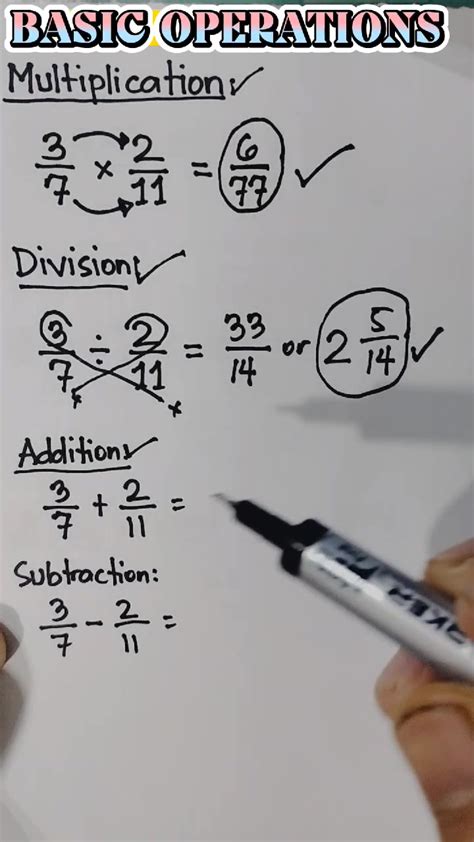 BASIC OPERATIONS
Multiplication ✓
3/7 × 2/11 = 6/77 ✓
Division ✓
3/7 ÷ 2/11 = 33/14 or 2 5/14 ✓
Addition ✓
3/7 + 2/11 =
Subtraction:
3/7 - 2/11 =